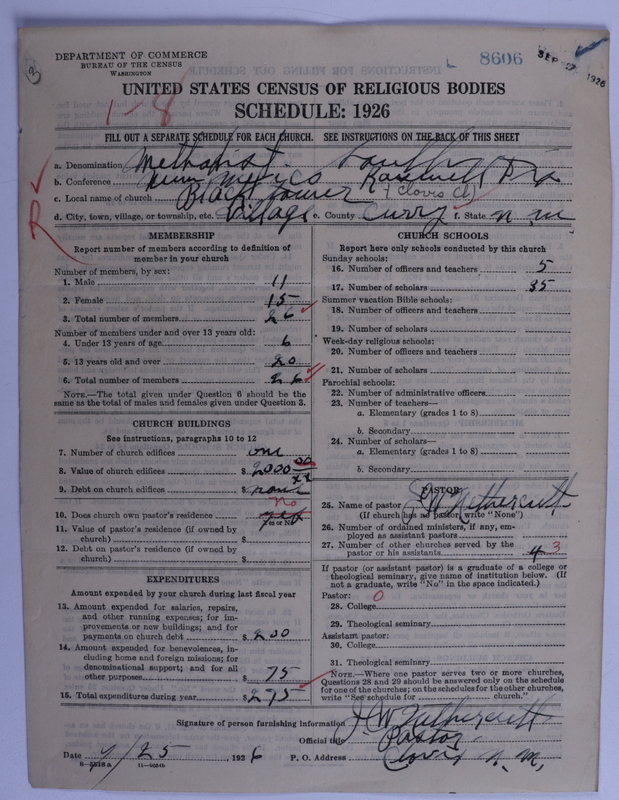 DEPARTMENT OF COMMERCE
BUREAU OF THE CENSUS
WASHINGTON
8606
SEP 1926
1-8
UNITED STATES CENSUS OF RELIGIOUS BODIES
SCHEDULE: 1926
FILL OUT A SEPARATE SCHEDULE FOR EACH CHURCH. SEE INSTRUCTIONS ON THE BACK OF THIS SHEET
a. Denomination Methodist South
b. Conference New Mexico Roswell Dis
c. Local name of church Black Tower (Clovis Ct)
d. City, town, village, or township, etc. Village e. County Curry f. State N. M
R
MEMBERSHIP
Report number of members according to definition of member in your church
Number of members, by sex:
1. Male 11
2. Female 15
3. Total number of members 26
Number of members under and over 13 years old:
4. Under 13 years of age 6
5. 13 years old and over 20
6. Total number of members 26
NOTE.—The total given under Question 6 should be the
same as the total of males and females given under Question 3.
CHURCH BUILDINGS
See instructions, paragraphs 10 to 12
7. Number of church edifices one
8. Value of church edifices $ 2000 00
9. Debt on church edifices $ none
No
10. Does church own pastor's residence? yes
Yes or No
11. Value of pastor's residence (if owned by
church) $
12. Debt on pastor's residence (if owned by
church) $
EXPENDITURES
Amount expended by your church during last fiscal year
13. Amount expended for salaries, repairs,
and other running expenses; for im-
provements or new buildings; and for
payments on church debt $ 200
14. Amount expended for benevolences, in-
cluding home and foreign missions; for
denominational support; and for all
other purposes $ 75
15. Total expenditures during year $ 275
CHURCH SCHOOLS
Report here only schools conducted by this church
Sunday schools:
16. Number of officers and teachers 5
17. Number of scholars 35
Summer vacation Bible schools:
18. Number of officers and teachers
19. Number of scholars
Week-day religious schools:
20. Number of officers and teachers
21. Number of scholars
Parochial schools:
22. Number of administrative officers
23. Number of teachers—
a. Elementary (grades 1 to 8)
b. Secondary
24. Number of scholars—
a. Elementary (grades 1 to 8)
b. Secondary
PASTOR
25. Name of pastor J W Nethercutt
(If church has no pastor, write "None")
26. Number of ordained ministers, if any, em-
ployed as assistant pastors
27. Number of other churches served by the
pastor or his assistants 4 3
If pastor (or assistant pastor) is a graduate of a college or
theological seminary, give name of institution below. (If
not a graduate, write "No" in the space indicated.)
Pastor: 0
28. College
29. Theological seminary
Assistant pastor:
30. College
31. Theological seminary
NOTE.—Where one pastor serves two or more churches,
Questions 28 and 29 should be answered only on the schedule
for one of the churches; on the schedules for the other churches,
write "See schedule for church."
Signature of person furnishing information J W Nethercutt
Official title Pastor
Date 9/25, 1926 P. O. Address Clovis N. M.